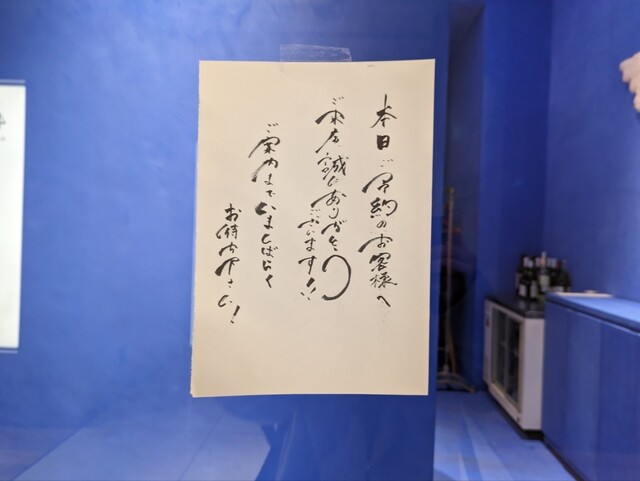 本日ご予約のお客様へ
ご来店誠にありがとう
ございます!!
ご案内までいましばらく
お待ち下さい!